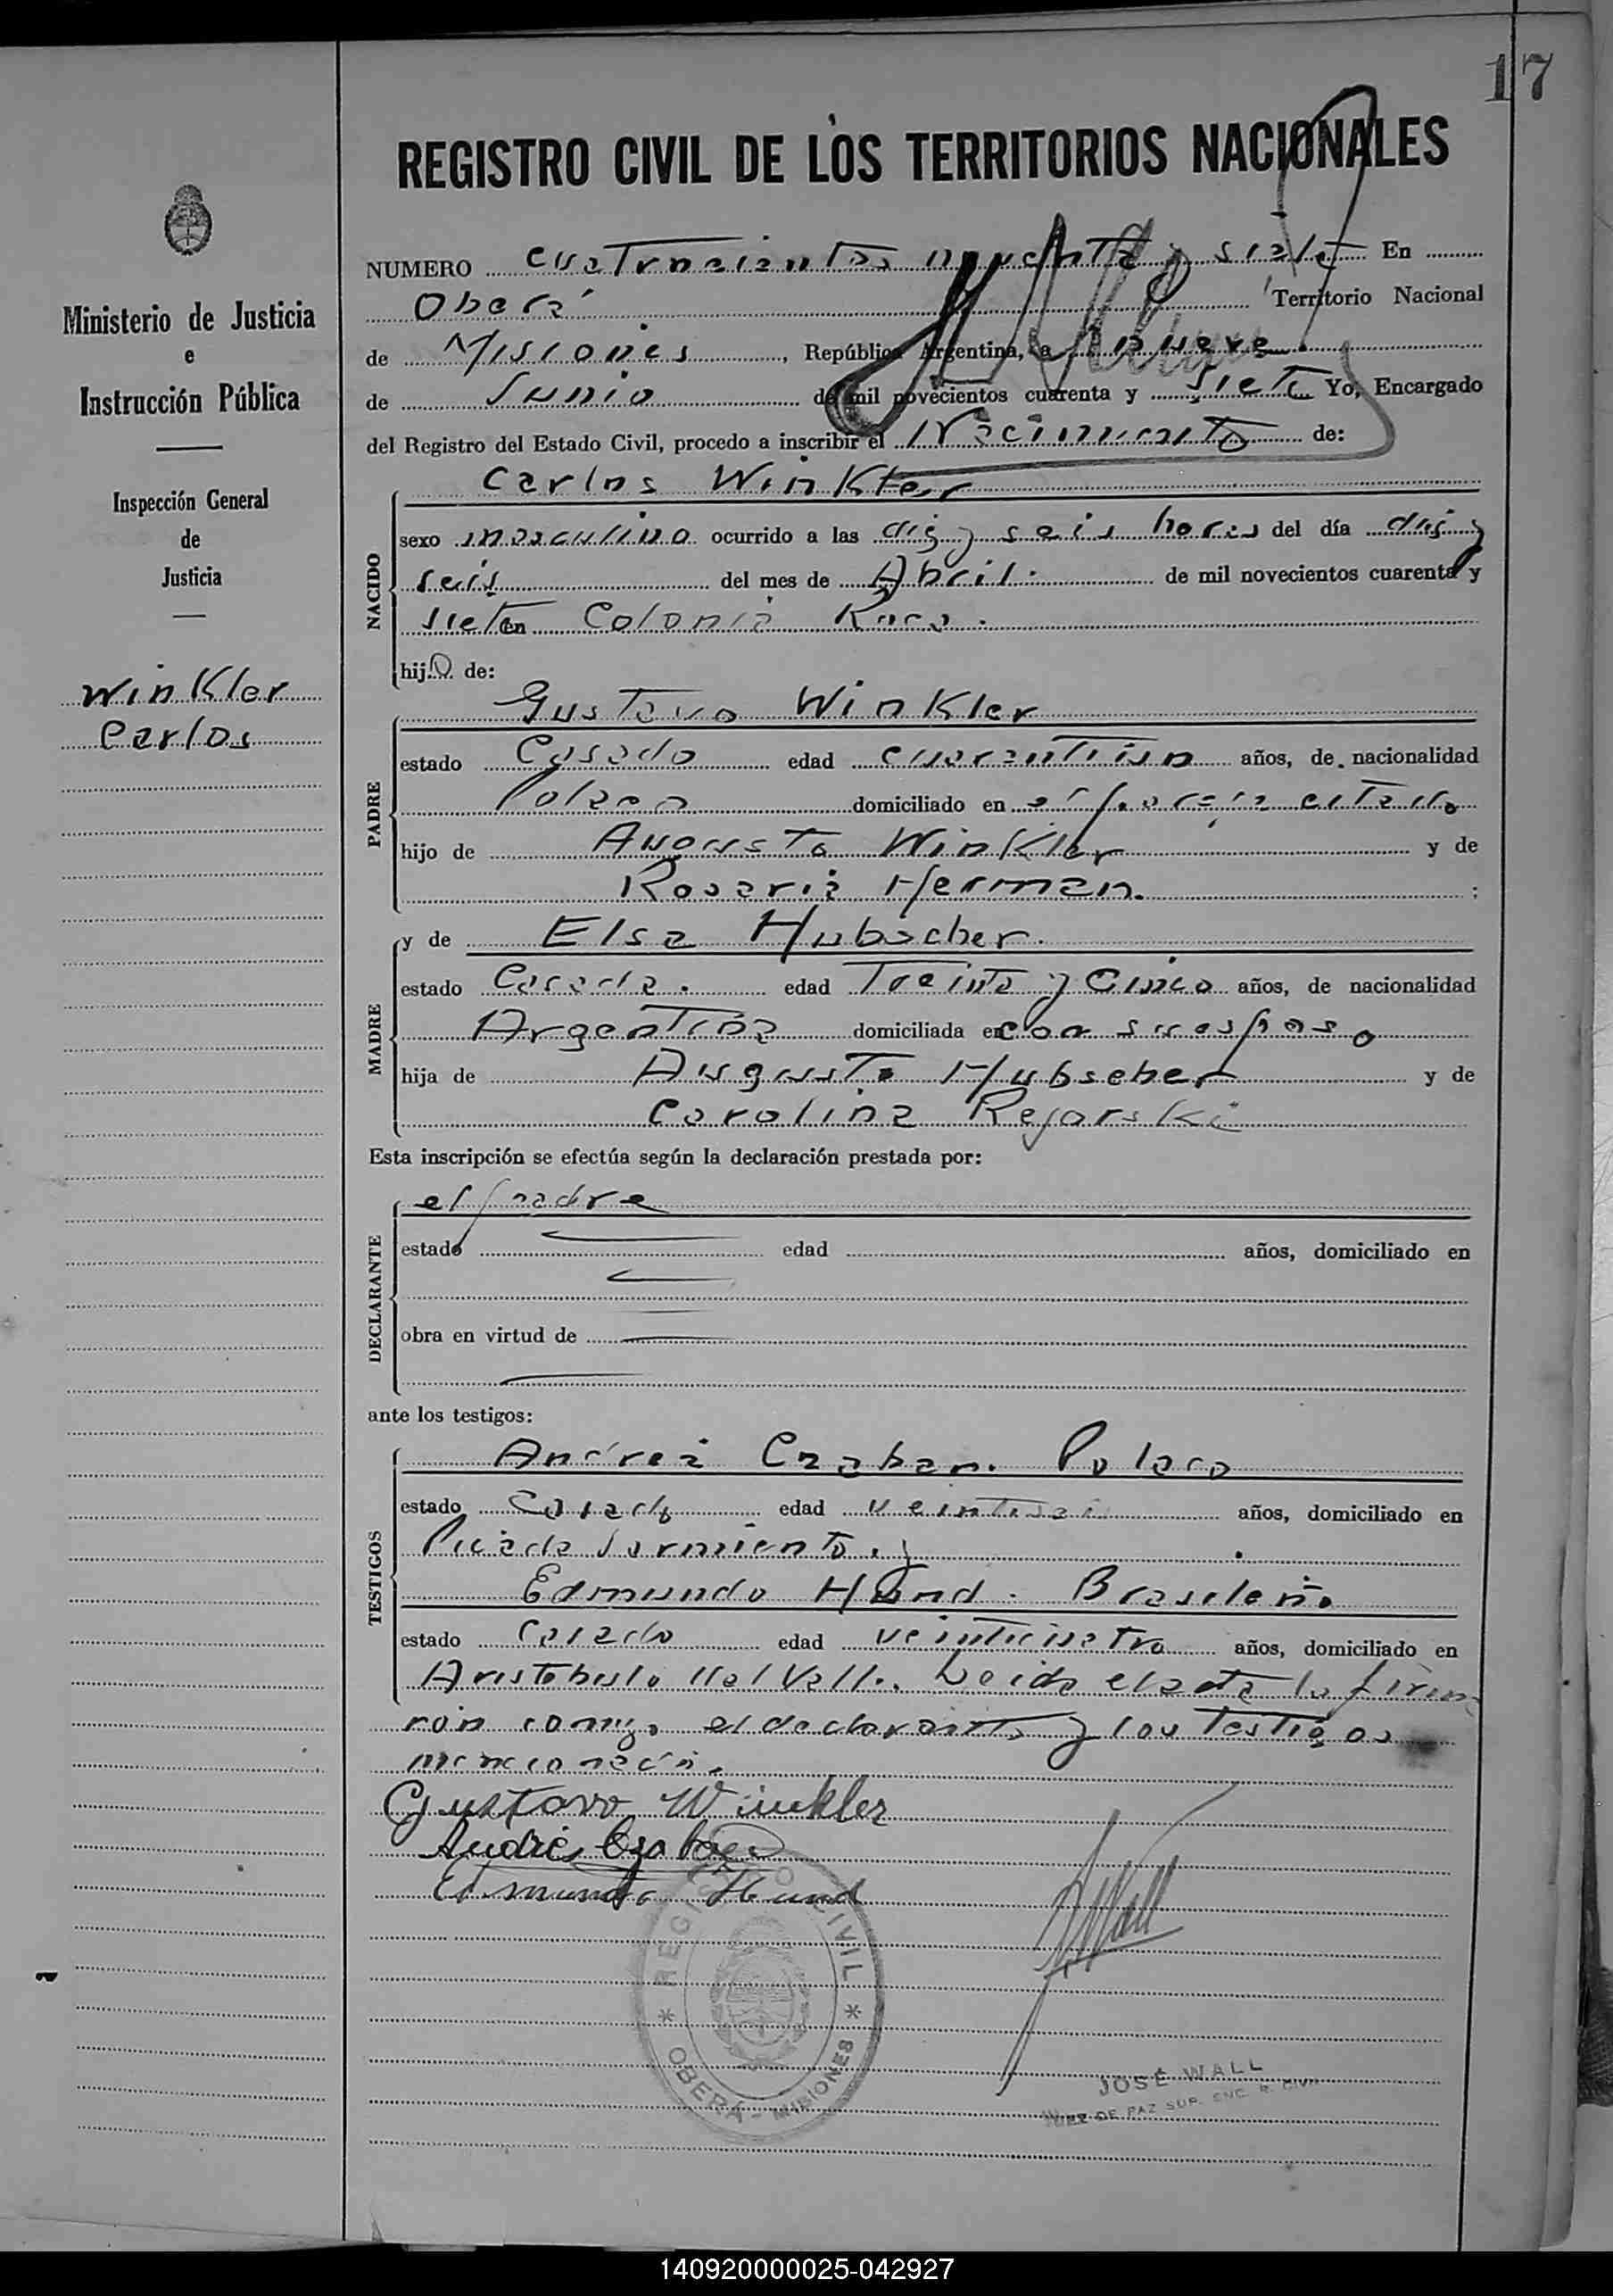 17
REGISTRO CIVIL DE LOS TERRITORIOS NACIONALES
Ministerio de Justicia
e
Instrucción Pública
Inspección General
de
Justicia
Winkler
Carlos
NUMERO cuatrocientos noventa y siete En
Oberá Territorio Nacional
de Misiones, República Argentina, a nueve
de Junio de mil novecientos cuarenta y siete Yo, Encargado
del Registro del Estado Civil, procedo a inscribir el Nacimiento de:
NACIDO
Carlos Winkler
sexo masculino ocurrido a las diez y seis horas del día diez y
seis del mes de Abril. de mil novecientos cuarenta y
siete en Colonia Roca.
hijo de:
PADRE
Gustavo Winkler
estado Casado edad cuarentiun años, de nacionalidad
Polaca domiciliado en el paraje citado
hijo de Augusto Winkler y de
Rosaria Herman. ;
MADRE
y de Elsa Hubscher.
estado Casada. edad Treinta y Cinco años, de nacionalidad
Argentina domiciliada en con su esposo
hija de Augusto Hubscher y de
Carolina Rejorski
Esta inscripción se efectúa según la declaración prestada por:
DECLARANTE
el padre
estado edad años, domiciliado en
obra en virtud de
ante los testigos:
TESTIGOS
Andres Czaban. Polaco
estado Casado edad años, domiciliado en
Picada Sarmiento. y
Edmundo Hund. Brasileño
estado Casado edad veinticuatro años, domiciliado en
Aristobulo del Valle. Leida el acta la firma
ron conmigo el declarante y los testigos
mencionados.
Gustavo Winkler
Andrés Czaban
Edmundo Hund
JWall
REGISTRO CIVIL
* OBERÁ - MISIONES *
JOSÉ WALL
JUEZ DE PAZ SUP. ENC. R. CIVIL
140920000025-042927